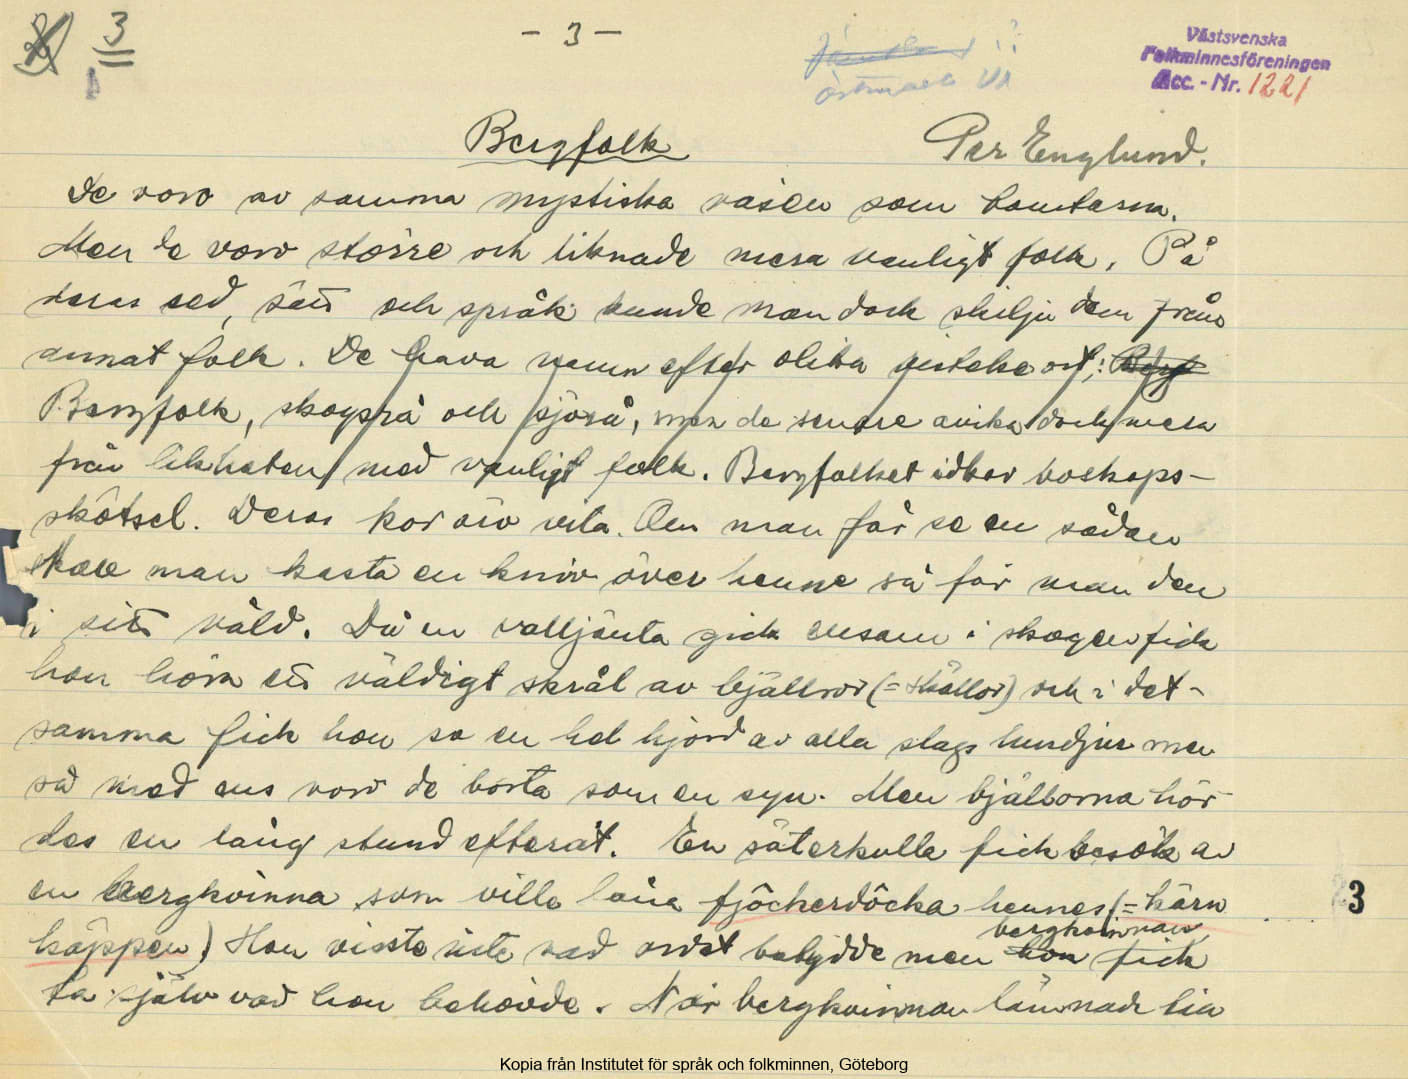 3
- 3 -
Västsvenska
Folkminnesföreningen
Acc. - Nr. 1221
Bergfolk
Per Englund.
De voro av samma mystiska väsen som tomtarna.
Men de voro större och liknade mera vanligt folk. På
deras sed, sätt och språk kunde man dock skilja dem från
annat folk. De hava namn efter olika vistelseort:
Bergfolk, skogsrå och sjörå, men de senare avvika dock mera
från likheten med vanligt folk. Bergfolket idkar boskaps-
skötsel. Deras kor äro vita. Om man får se en sådan
skall man kasta en kniv över henne så får man den
i sitt våld. Då en valljänta gick ensam i skogen fick
hon höra ett väldigt skrål av bjällror (= skällor) och i det-
samma fick hon se en hel hjord av alla slags husdjur men
så med ens voro de borta som en syn. Men bjällorna hör-
des en lång stund efteråt. En säterkulla fick besök av
en bergkvinna som ville låna fjöckerdöcka hennes (= kärn
käppen) Hon visste inte vad ordet betydde men bergkvinnan fick
ta själv vad hon behövde. När bergkvinnan lämnade
3
Kopia från Institutet för språk och folkminnen, Göteborg